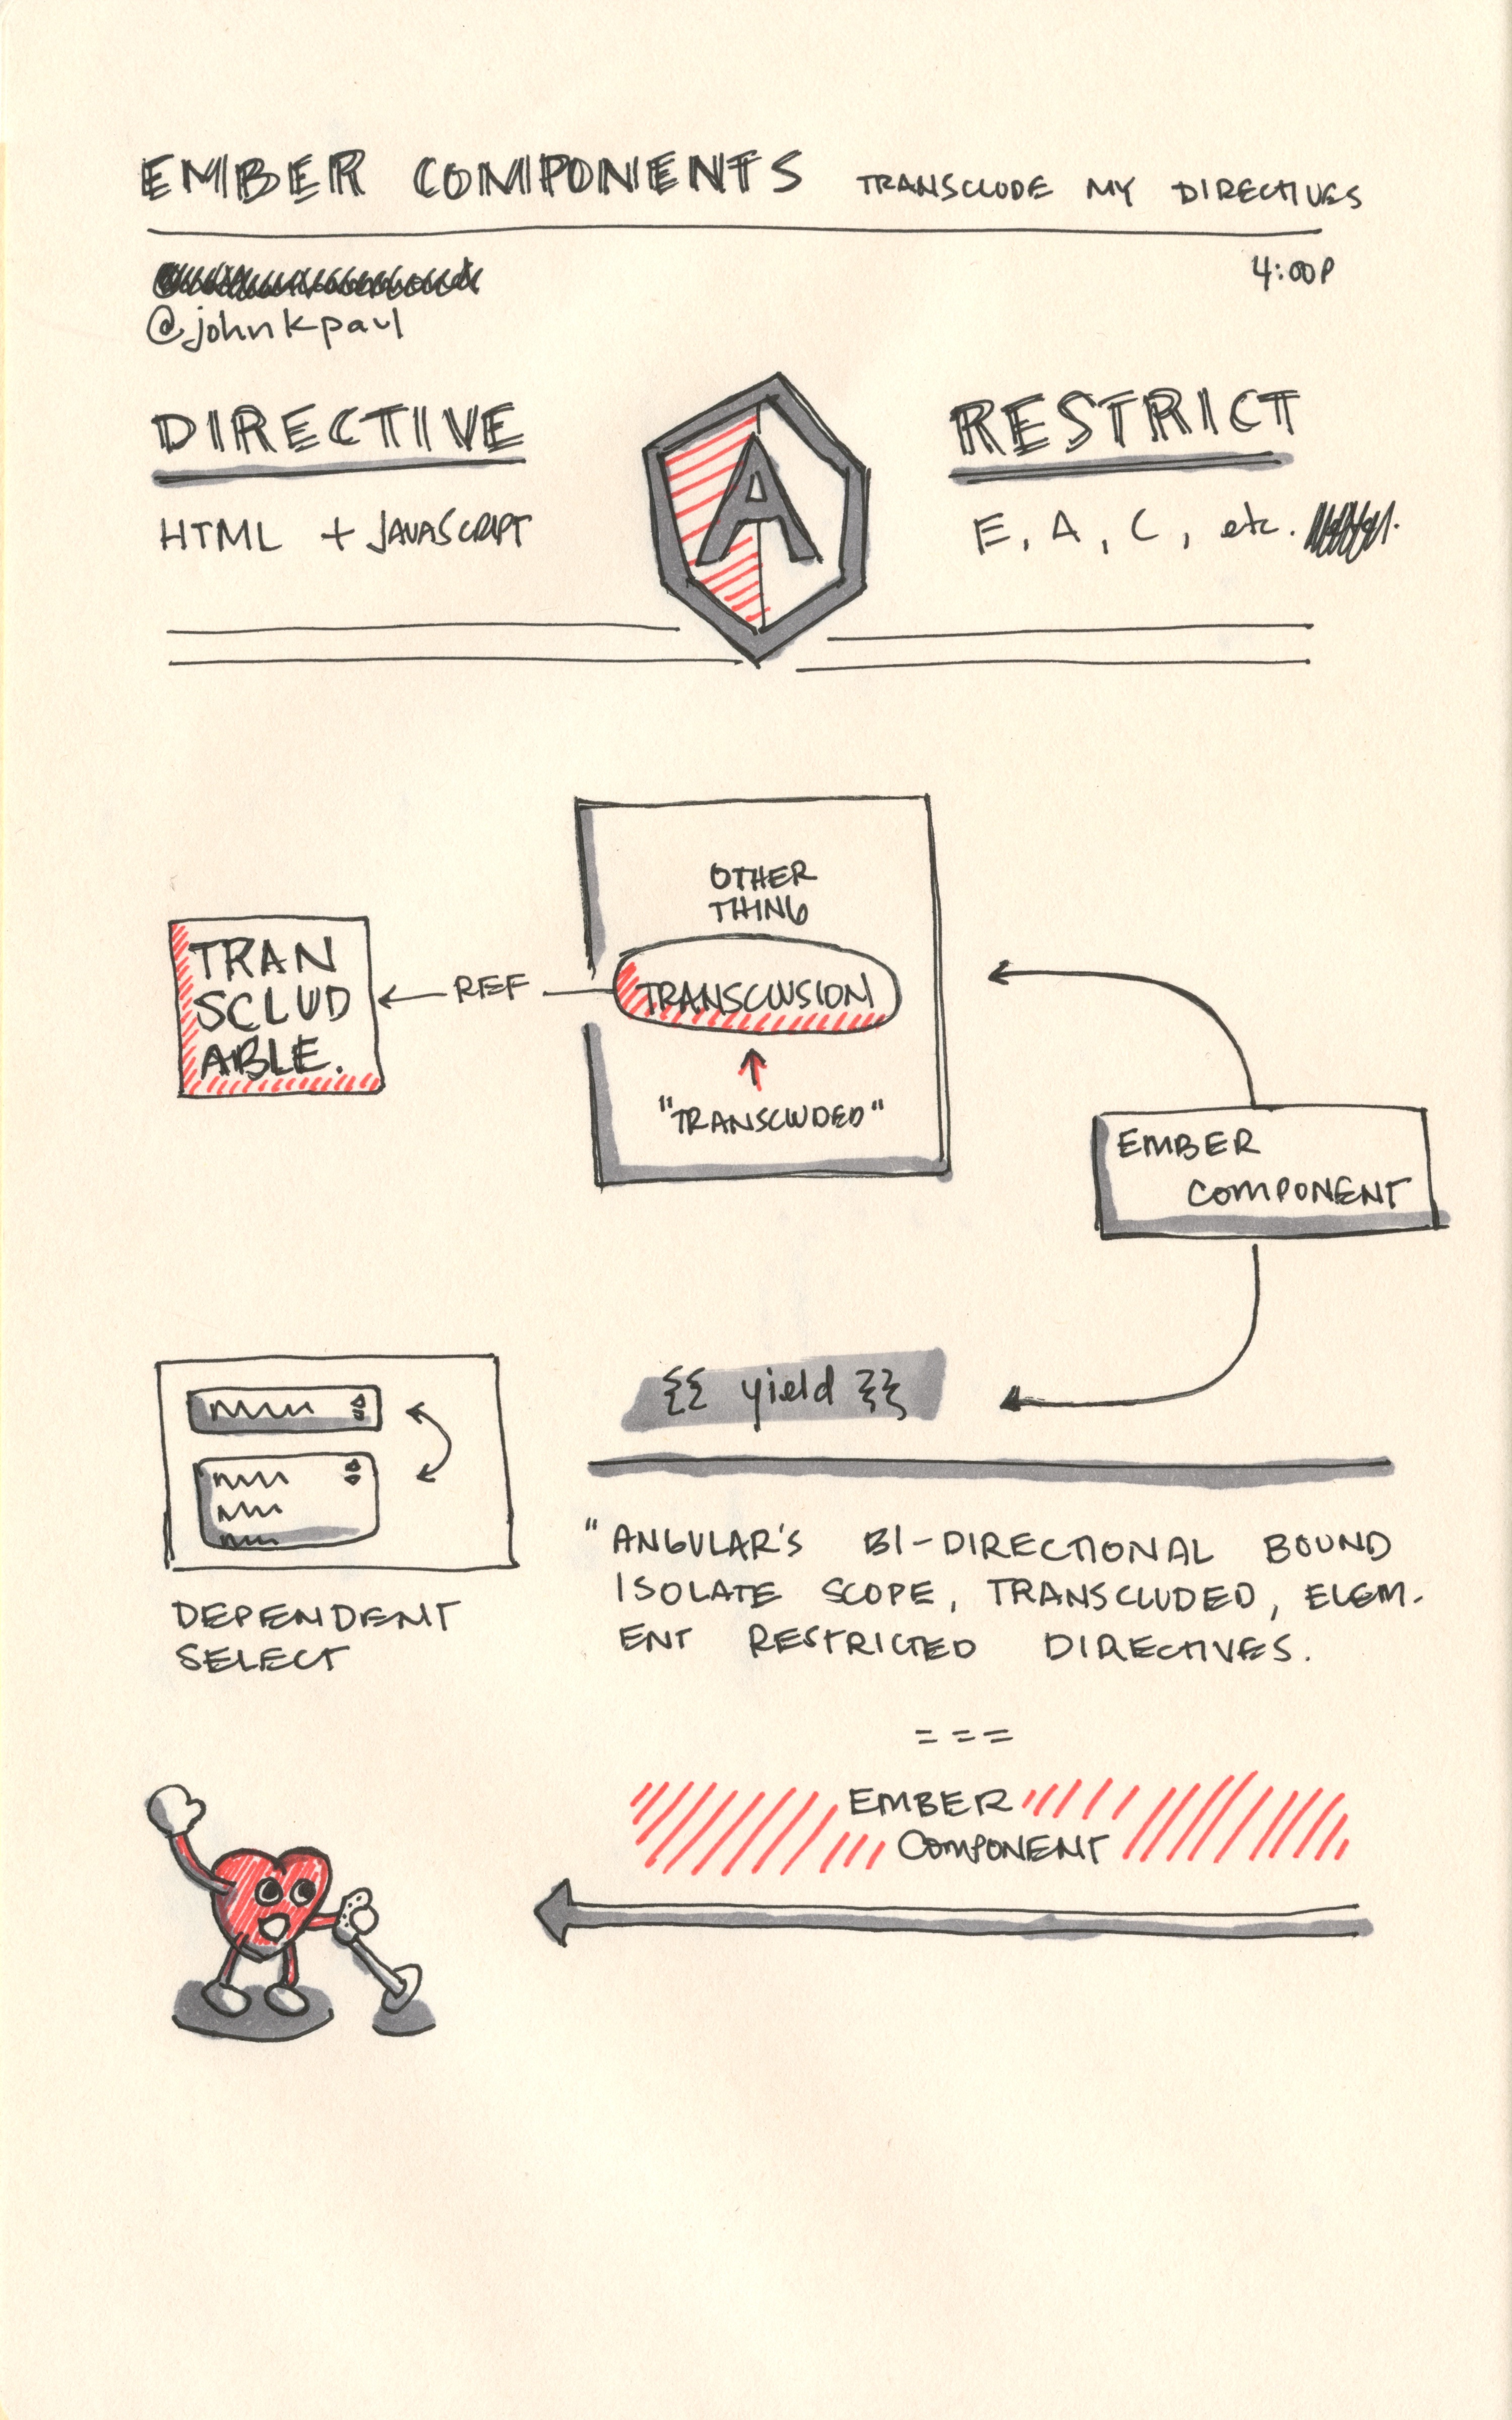 EMBER COMPONENTS TRANSCLUDE MY DIRECTIVES
4:00P
@johnkpaul
DIRECTIVE
HTML + JAVASCRIPT
A
RESTRICT
E, A, C, etc.
OTHER
THING
TRANSCLUSION
"TRANSCLUDED"
REF
TRAN
SCLUD
ABLE.
EMBER
COMPONENT
{{ yield }}
DEPENDENT
SELECT
"ANGULAR'S BI-DIRECTIONAL BOUND
ISOLATE SCOPE, TRANSCLUDED, ELEM-
ENT RESTRICTED DIRECTIVES.
===
EMBER
COMPONENT